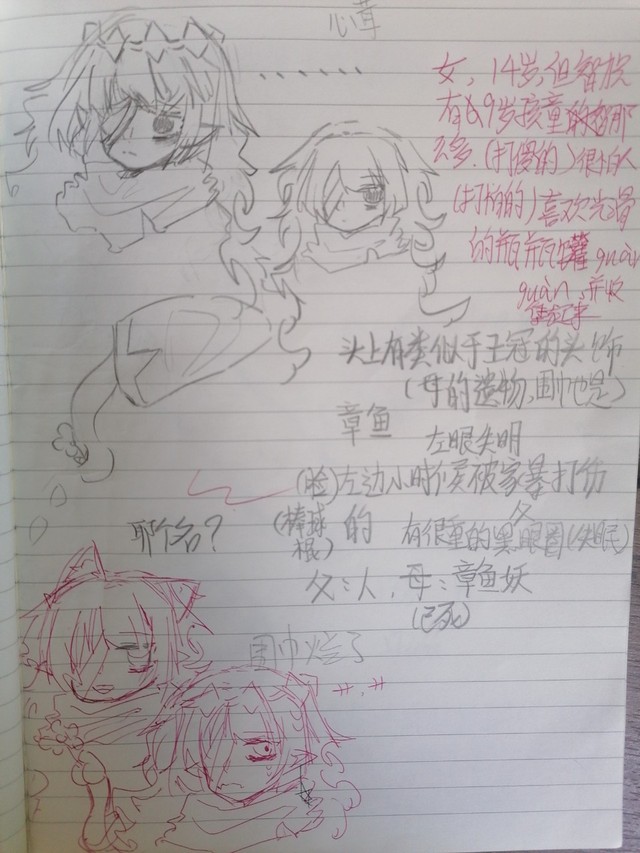 心草
......
女，14岁，但智商
有69岁孩童的那
么多（打傻的）很怕人
(打怕的)喜欢光滑
的瓶瓶罐罐guàn
guàn，并收
集起来
头上有类似于王冠的头饰
(母的遗物，
章鱼
左眼失明
(脸)左边小时候被家暴打伤
(棒球棍)的
父
有很重的黑眼圈(失眠)
耶名？
父：人，母：章鱼妖
(已死)
围巾烂了